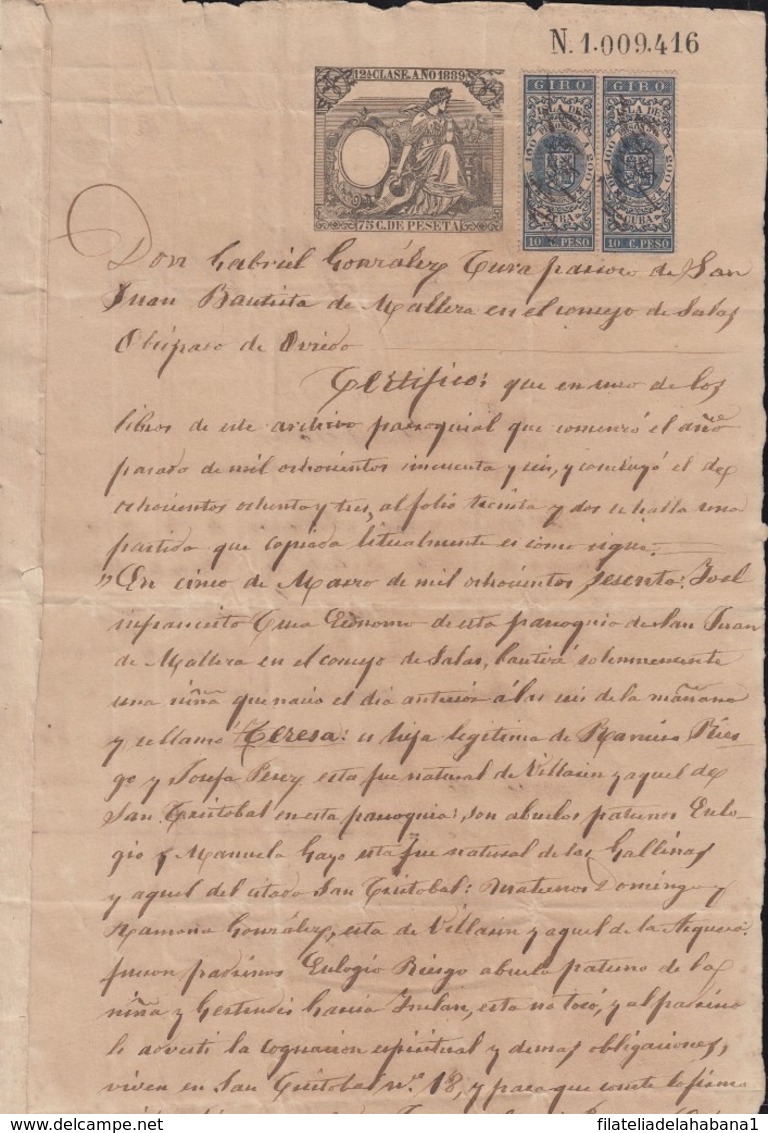 N.1.009.416
12ª CLASE. AÑO 1889
75 C. DE PESETA
GIRO GIRO
ISLA DE ISLA DE
CUBA CUBA
10 C. PESO 10 C. PESO
Don Gabriel González Cura párroco de San
Juan Bautista de Mallera en el concejo de Salas
Obispado de Oviedo
Certifico: que en uno de los
libros de este archivo parroquial que comenzó el año
pasado de mil ochocientos cincuenta y seis, y concluyó el de
ochocientos ochenta y tres, al folio treinta y dos se halla una
partida que copiada literalmente es como sigue.
"En cinco de Marzo de mil ochocientos sesenta: Yo el
infrascrito Cura Ecónomo de esta parroquia de San Juan
de Mallera en el concejo de Salas, bauticé solemnemente
una niña que nacio el dia anterior á las seis de la mañana
y se llamó Teresa: es hija legitima de Ramiro Ries-
go y Josefa Perez esta fue natural de Villarin y aquel de
San Cristobal en esta parroquia: son abuelos paternos Eulo-
gio y Manuela Gayo esta fue natural de las Gallinas
y aquel del citado San Cristobal: Maternos Domingo y
Ramona González, esta de Villarin y aquel de la
fueron padrinos Eulogio Riesgo abuelo paterno de la
niña y Gertrudis Garcia esta no tocó, y al padrino
le advertí la cognacion espiritual y demas obligaciones,
viven en San Cristobal nº 18, y para que conste lo firmo
filateliadelahabana1